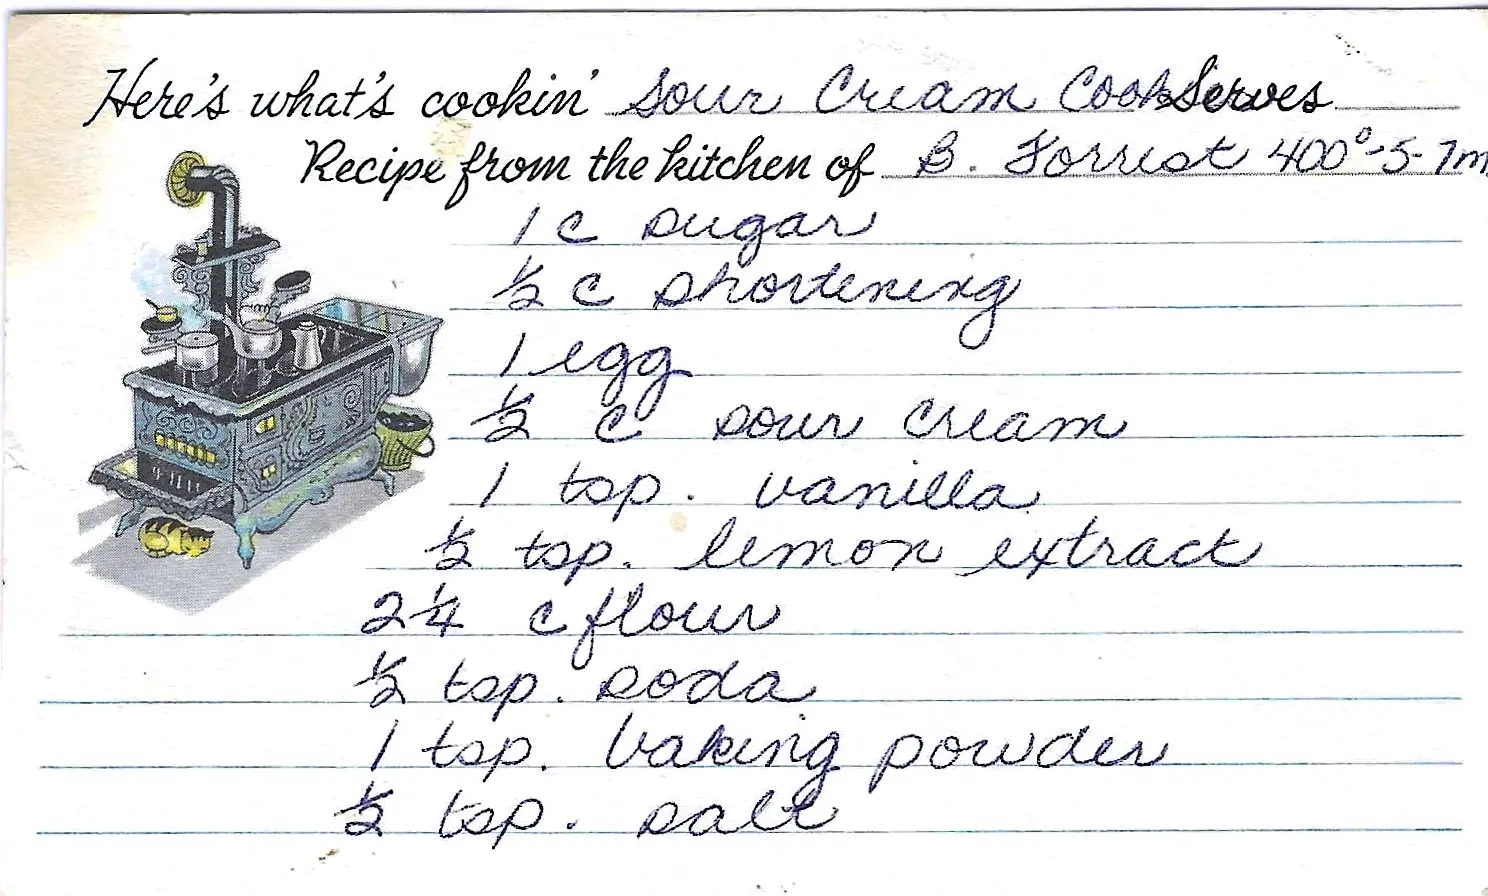 Here's what's cookin' Sour Cream Cook Serves
Recipe from the kitchen of B. Forrest 400°-5-7m
1 c sugar
½ c shortening
1 egg
½ c sour cream
1 tsp. vanilla
½ tsp. lemon extract
2 ¼ c flour
½ tsp. soda
1 tsp. baking powder
½ tsp. salt